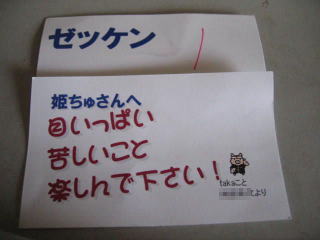 ゼッケン
姫ちゅさんへ
②いっぱい
苦しいこと
楽しんで下さい!
takaこと
てより